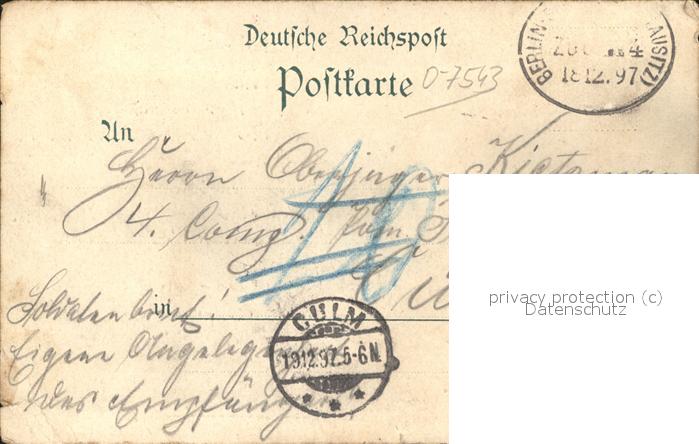 Deutsche Reichspost
Postkarte
0-7543
BERLIN- AUSITZ)
ZUG 4
18 12.97
An
Herrn Oberjäger Kietzman
4. Comp. Pom.
Cü
in
Soldatenbrief!
Eigene Angelegenheit
des Empfängers
10
CULM
19 12.97.5-6N.
privacy protection (c)
Datenschutz